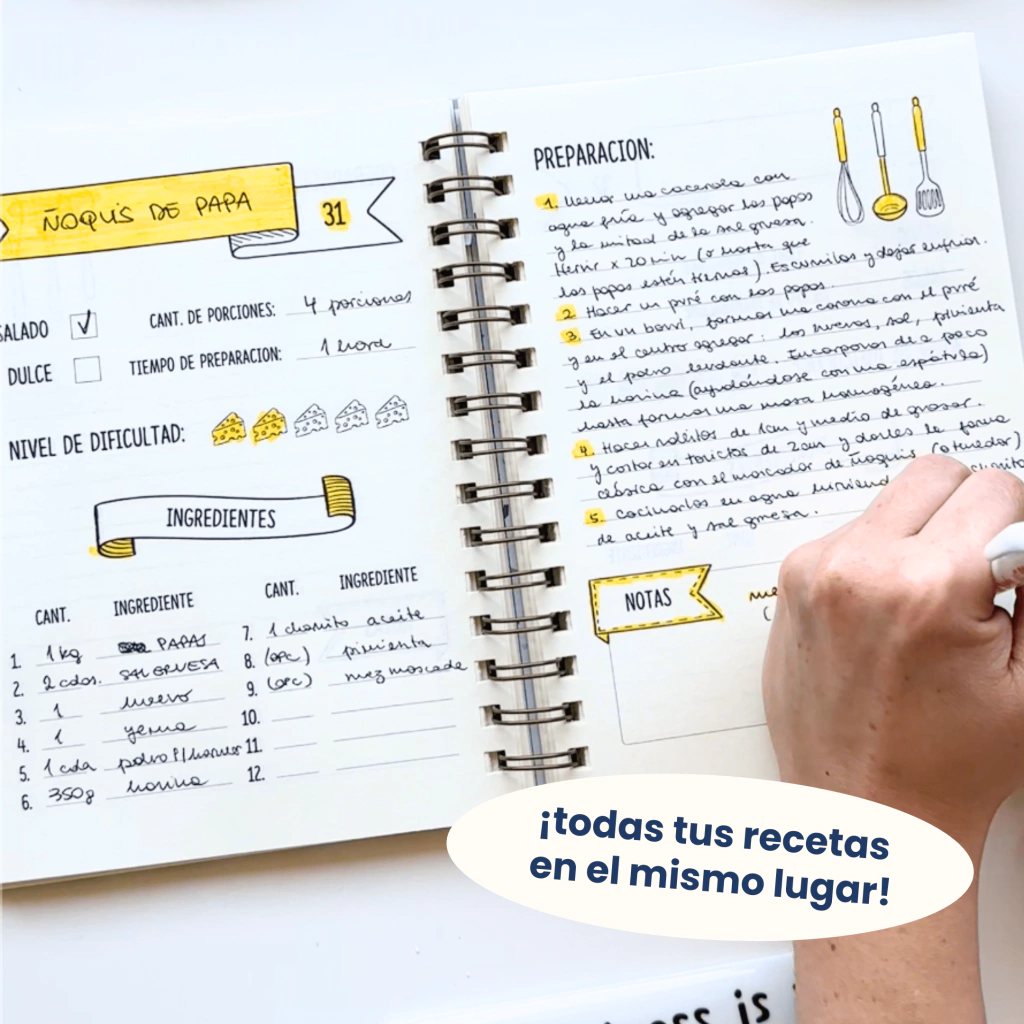 ÑOQUIS DE PAPA
31
SALADO
CANT. DE PORCIONES: 4 porciones
DULCE
TIEMPO DE PREPARACION: 1 hora
NIVEL DE DIFICULTAD:
INGREDIENTES
CANT. INGREDIENTE
1. 1 kg PAPAS
2. 2 cdas. SAL GRUESA
3. 1 huevo
4. 1 yema
5. 1 cda polvo P/hornear
6. 350g harina
CANT. INGREDIENTE
7. 1 chorrito aceite
8. (opc) pimienta
9. (opc) nuez moscada
10.
11.
12.
PREPARACION:
1. Llenar una cacerola con
agua fría y agregar las papas
y la mitad de la sal gruesa.
Hervir x 20 min (o hasta que
las papas estén tiernas). Escurrirlas y dejar enfriar.
2. Hacer un puré con las papas.
3. En un bowl, formar una corona con el puré
y en el centro agregar: los huevos, sal, pimienta
y el polvo leudante. Incorporar de a poco
la harina (ayudándose con una espátula)
hasta formar una masa homogénea.
4. Hacer rollitos de 1cm y medio de grosor.
y cortar en trocitos de 2cm y darles la forma
clásica con el marcador de ñoquis (o tenedor)
5. Cocinarlos en agua hirviendo
de aceite y sal gruesa.
NOTAS
¡todas tus recetas
en el mismo lugar!
is